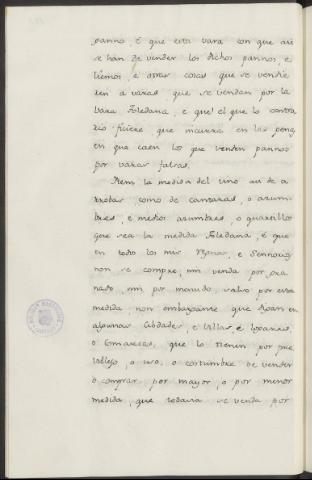 panno, é que esta vara con que asi
se han de vender los dichos pannos, e
lienzos, é otras cosas que se vendie
ren a varas que se vendan por la
vara Toledana, e que el que lo contra
rio ficiere que incurra en las penas
en que caen los que venden pannos
por varas falsas.
Item la medida del vino asi de a
rrobas, como de cantaras, o azum
bres, e medios azumbres, o quartillos
que sea la medida Toledana, é que
en todos los mis Regnos, e Sennorios
non se compre, nin venda por gra
nado, nin por menudo, salvo por esta
medida non embargante que digan en
algunas Cibdades, e Villas, é logares,
o Comarcas, que lo tienen por pre
villejo, o uso, o costumbre de vender
o comprar por mayor, o por menor
medida, que todavia se venda por